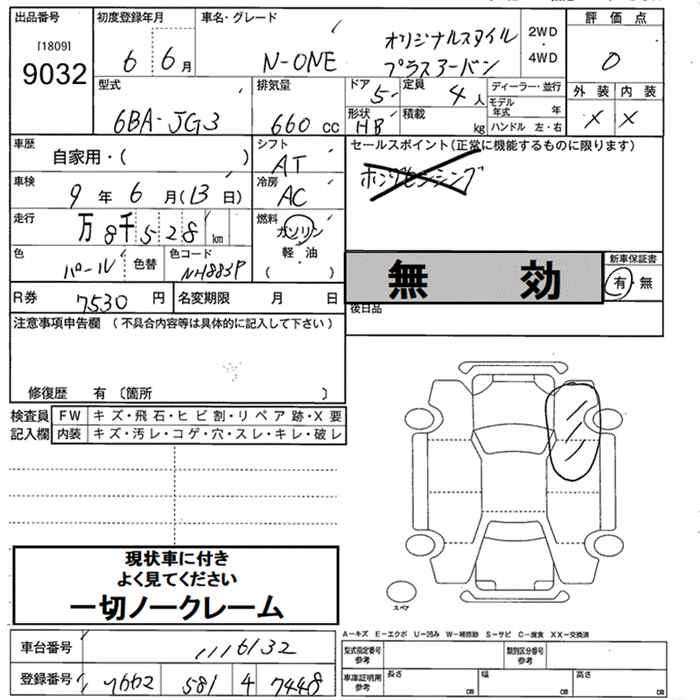 出品番号
[1809]
9032
初度登録年月
6 6月
車名・グレード
N-ONE
オリジナルスタイル
プラスアーバン
2WD
・
4WD
評価点
0
外装 内装
X X
型式
6BA-JG3
排気量
660 cc
ドア 5
定員 4人
形状 HB
積載 kg
ディーラー・並行
モデル年式 年
ハンドル 左・右
車歴
自家用・( )
シフト
AT
セールスポイント(正常に機能するものに限ります)
ホンダセンシング
車検
9年6月(13日)
冷房
AC
走行
万8千528km
燃料
ガソリン
軽・油
( )
色
パール
色替
色コード
NH883P
無効
新車保証書
有・無
R券 7530円
名変期限 月 日
後日品
注意事項申告欄(不具合内容等は具体的に記入して下さい)
修復歴 有 〔箇所 〕
検査員
記入欄
FW キズ・飛石・ヒビ割・リペア跡・X要
内装 キズ・汚レ・コゲ・穴・スレ・キレ・破レ
現状車に付き
よく見てください
一切ノークレーム
スペア
A−キズ E−エクボ U−凹み W−補修跡 S−サビ C−腐食 XX−交換済
車台番号 1116132
型式指定番号
参考
類別区分番号
参考
登録番号 581 4 7448
車庫証明用
参考
長さ cm
幅 cm
高さ cm